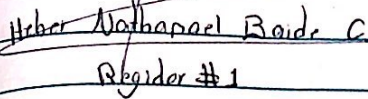 Heber Nathanael Baide C
Regidor #1